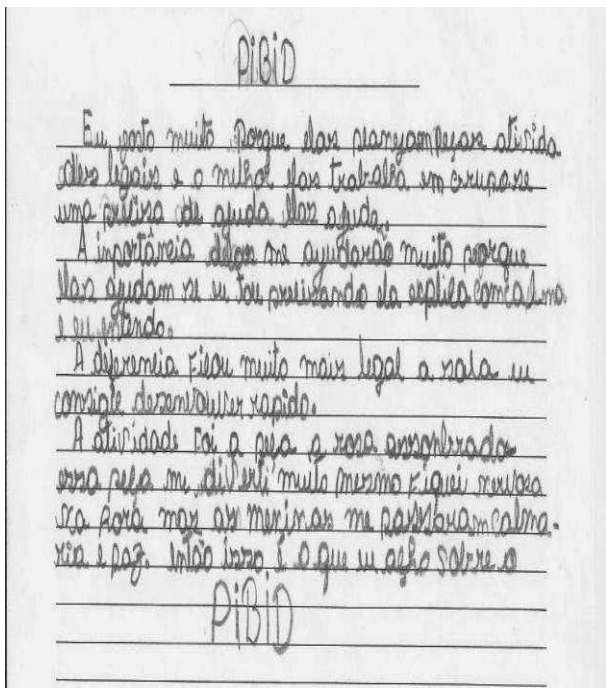 PiBiD
Eu gosto muito porque elas planejam peças ativida
des legais e o melhor elas trabalha em grupo se
uma precisa de ajuda elas ajuda.
A inportância delas me ajudarão muito porque
elas ajudam se eu tou precisando ela esplica com calma
e eu entendo.
A diferencia ficou muito mais legal a sala eu
consigle desenvouver rapido.
A atividade foi a peça a rosa assonbrada
essa peça me diverti muito mesmo fiquei nervosa
na hora mas as meninas me passaram calma.
ria e paz. então isso é o que eu acho sobre o
PiBiD